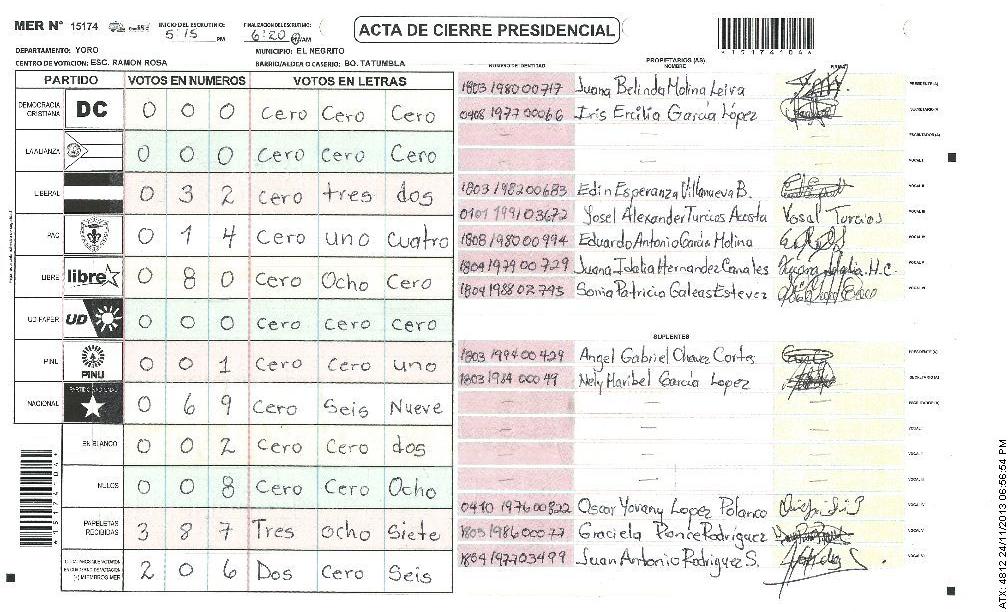 MER N° 15174
INICIO DEL ESCRUTINIO: 5:15 PM
FINALIZACION DEL ESCRUTINIO: 6:20 PM/AM
ACTA DE CIERRE PRESIDENCIAL
*15174104*
DEPARTAMENTO: YORO
MUNICIPIO: EL NEGRITO
CENTRO DE VOTACION: ESC. RAMON ROSA
BARRIO/ALDEA O CASERIO: BO. TATUMBLA
PARTIDO VOTOS EN NUMEROS VOTOS EN LETRAS
DEMOCRACIA CRISTIANA DC 0 0 0 Cero Cero Cero
LA ALIANZA 0 0 0 Cero Cero Cero
LIBERAL 0 3 2 cero tres dos
PAC 0 1 4 Cero uno cuatro
LIBRE libre 0 8 0 Cero Ocho Cero
UD/FAPER UD 0 0 0 Cero Cero cero
PINU PINU 0 0 1 Cero cero uno
NACIONAL 0 6 9 Cero Seis Nueve
EN BLANCO 0 0 2 Cero Cero dos
NULOS 0 0 8 Cero Cero Ocho
PAPELETAS RECIBIDAS 3 8 7 Tres ocho Siete
(+) MIEMBROS MER 2 0 6 Dos Cero Seis
NUMERO DE IDENTIDAD PROPIETARIOS (AS) NOMBRE FIRMA
1803 1980 00717 Juana Belinda Molina Leiva PRESIDENTE (A)
0408 1977 00066 Iris Ercilia García López SECRETARIO (A)
ESCRUTADOR (A)
VOCAL I
1803 1982 00683 Edin Esperanza Villanueva B. VOCAL II
0101 1991 03672 Yosel Alexander Turcios Acosta Yosal Turcios VOCAL III
1808 1980 00994 Eduardo Antonio García Molina VOCAL IV
1804 1979 00729 Juana Idalia Hernandez Canales VOCAL V
1804 1988 02795 Sonia Patricia Galeas Estevez VOCAL VI
SUPLENTES
1803 1994 00429 Angel Gabriel Chavez Cortes PRESIDENTE (A)
1803 1984 00049 Nely Maribel García Lopez SECRETARIO (A)
ESCRUTADOR (A)
VOCAL I
VOCAL II
VOCAL III
0410 1976 00822 Oscar Yovany Lopez Polanco VOCAL IV
1803 1986 00077 Graciela Ponce Rodriguez VOCAL V
1804 1977 03499 Juan Antonio Rodriguez S. VOCAL VI
*15174104*
ATX: 4812 24/11/2013 06:56:54 PM